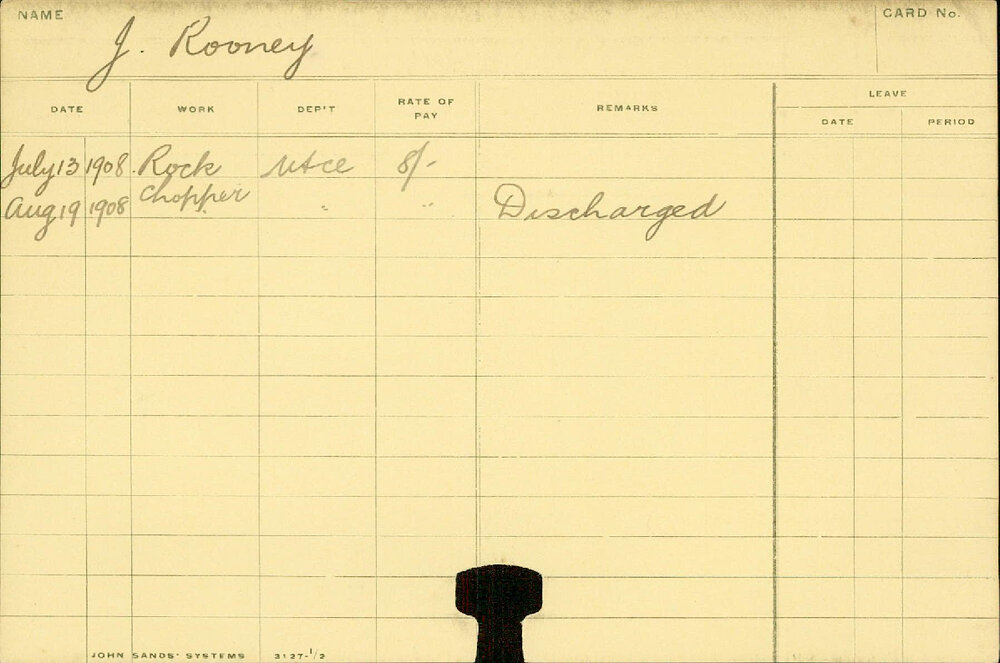 NAME
J. Rooney
CARD No.
DATE WORK DEP'T RATE OF PAY REMARKS LEAVE
DATE PERIOD
July 13 1908. Rock Mtce 8/-
Chopper
Aug 19 1908 " " Discharged
JOHN SANDS' SYSTEMS 3127-1/2